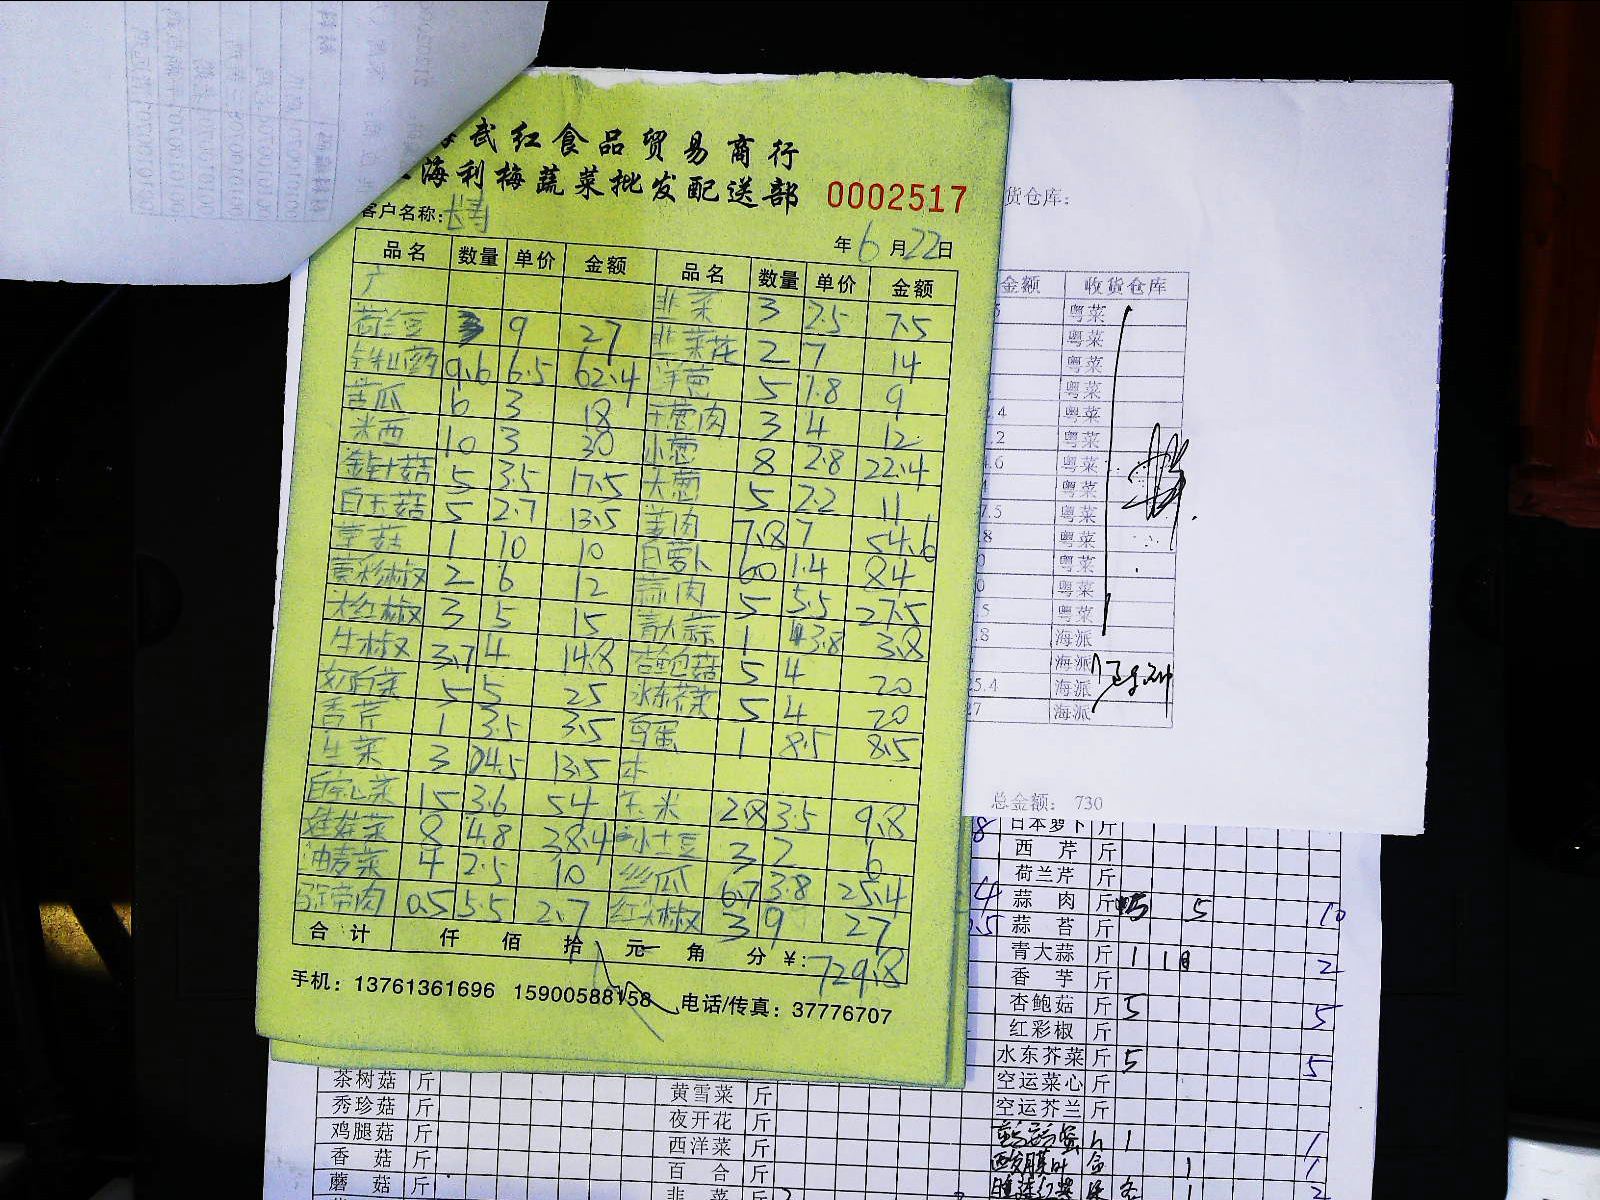 武红食品贸易商行
海利梅蔬菜批发配送部 0002517
客户名称: 长寿
年 6 月 22 日
品名 数量 单价 金额 品名 数量 单价 金额
广 韭菜 3 2.5 7.5
荷兰豆 3 9 27 韭菜花 2 7 14
铁杆山药 9.6 6.5 62.4 洋葱 5 1.8 9
苦瓜 6 3 18 干葱肉 3 4 12
米西 10 3 30 小葱 8 2.8 22.4
金针菇 5 3.5 17.5 大葱 5 2.2 11
白玉菇 5 2.7 13.5 姜肉 7.8 7 54.6
草菇 1 10 10 白萝卜 60 1.4 84
黄彩椒 2 6 12 蒜肉 5 5.5 27.5
大红椒 3 5 15 青大蒜 1 3.8 3.8
牛椒 3.7 4 14.8 杏鲍菇 5 4 20
5 5 25 水东芥菜 5 4 20
香芹 1 3.5 3.5 1 8.5 8.5
生菜 3 4.5 13.5 本
白空心菜 15 3.6 54 玉米 2.8 3.5 9.8
娃娃菜 8 4.8 38.4 小土豆 3 2 6
油麦菜 4 2.5 10 丝瓜 6.7 3.8 25.4
马蹄肉 0.5 5.5 2.7 红尖椒 3 9 27
合计 仟 佰 拾 元 角 分 ¥: 729.8
手机: 13761361696 15900588158 电话/传真: 37776707
货仓库:
金额 收货仓库
粤菜
粤菜
粤菜
粤菜
.4 粤菜
.2 粤菜
.6 粤菜
粤菜
7.5 粤菜
.8 粤菜
0 粤菜
0 粤菜
.5 粤菜
.8 海派
海派
5.4 海派
27 海派
总金额: 730
日本萝卜 斤
西芹 斤
荷兰芹 斤
蒜肉 斤 5 5 10
蒜苔 斤
青大蒜 斤 1 1 2
香芋 斤
杏鲍菇 斤 5 5
红彩椒 斤
水东芥菜 斤 5 5
空运菜心 斤
空运芥兰 斤
1 1
1 1
1 2
茶树菇 斤 黄雪菜 斤
秀珍菇 斤 夜开花 斤
鸡腿菇 斤 西洋菜 斤
香菇 斤 百合 斤
蘑菇 斤 韭菜 斤